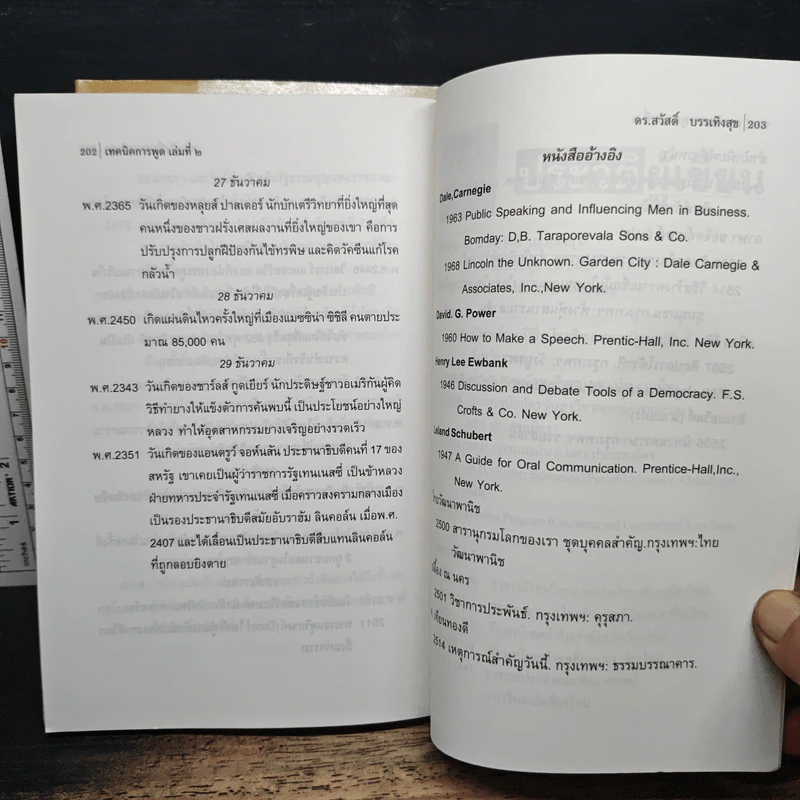 202 | เทคนิคการพูด เล่มที่ ๒
27 ธันวาคม
พ.ศ.2365 วันเกิดของหลุยส์ ปาสเตอร์ นักบักเตรีวิทยาที่ยิ่งใหญ่ที่สุด
คนหนึ่งของชาวฝรั่งเศสผลงานที่ยิ่งใหญ่ของเขา คือการ
ปรับปรุงการปลูกฝีป้องกันไข้ทรพิษ และคิดวัคซีนแก้โรค
กลัวน้ำ
28 ธันวาคม
พ.ศ.2450 เกิดแผ่นดินไหวครั้งใหญ่ที่เมืองแมซซิน่า ซิซิลี คนตายประ
มาณ 85,000 คน
29 ธันวาคม
พ.ศ.2343 วันเกิดของชาร์ลส์ กูดเยียร์ นักประดิษฐ์ชาวอเมริกันผู้คิด
วิธีทำยางให้แข็งตัวการค้นพบนี้ เป็นประโยชน์อย่างใหญ่
หลวง ทำให้อุตสาหกรรมยางเจริญอย่างรวดเร็ว
พ.ศ.2351 วันเกิดของแอนดรูว์ จอห์นสัน ประธานาธิบดีคนที่ 17 ของ
สหรัฐ เขาเคยเป็นผู้ว่าราชการรัฐเทนเนสซี่ เป็นข้าหลวง
ฝ่ายทหารประจำรัฐเทนเนสซี่ เมื่อคราวสงครามกลางเมือง
เป็นรองประธานาธิบดีสมัยอับราฮัม ลินคอล์น เมื่อพ.ศ.
2407 และได้เลื่อนเป็นประธานาธิบดีสืบแทนลินคอล์น
ที่ถูกลอบยิงตาย
ดร.สวัสดิ์ บรรเทิงสุข | 203
หนังสืออ้างอิง
Dale,Carnegie
1963 Public Speaking and Influencing Men in Business.
Bomday: D,B. Taraporevala Sons & Co.
1968 Lincoln the Unknown. Garden City : Dale Carnegie &
Associates, Inc.,New York.
David. G. Power
1960 How to Make a Speech. Prentic-Hall, Inc. New York.
Henry Lee Ewbank
1946 Discussion and Debate Tools of a Democracy. F.S.
Crofts & Co. New York.
Leland Schubert
1947 A Guide for Oral Communication. Prentice-Hall,Inc.,
New York.
ไทยวัฒนาพานิช
2500 สารานุกรมโลกของเรา ชุดบุคคลสำคัญ.กรุงเทพฯ:ไทย
วัฒนาพานิช
ณ นคร
2501 วิชาการประพันธ์. กรุงเทพฯ: คุรุสภา.
เทียนทองดี
2514 เหตุการณ์สำคัญวันนี้. กรุงเทพฯ: ธรรมบรรณาคาร.